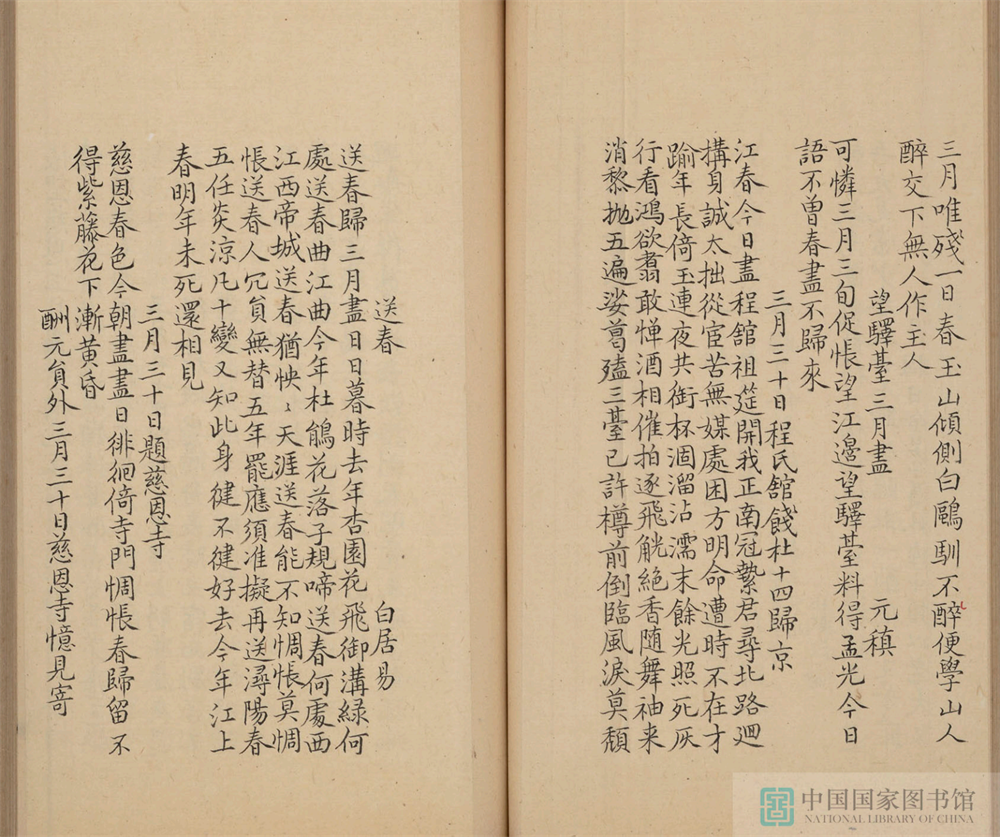 三月唯殘一日春玉山傾側白鷗馴不醉便學山人
醉交下無人作主人
望驛臺三月盡 元稹
可憐三月三旬促悵望江邊望驛臺料得孟光今日
語不曾春盡不歸來
三月三十日程氏舘餞杜十四歸京
江春今日盡程舘祖筵開我正南冠縶君尋北路廻
搆身誠太拙從宦苦無媒處困方明命遭時不在才
踰年長倚玉連夜共銜杯涸溜沾濡末餘光照死灰
行看鴻欲翥敢憚酒相催拍逐飛觥絕香随舞袖来
消黎抛五遍娑葛磕三臺已許樽前倒臨風淚莫頹
送春 白居易
送春歸三月盡日日暮時去年杏園花飛御溝緑何
處送春曲江曲今年杜鵑花落子規啼送春何處西
江西帝城送春猶怏〻天涯送春能不知惆悵莫惆
悵送春人冗負無替五年罷應須准擬再送潯陽春
五任炎涼凡十變又知此身健不健好去今年江上
春明年未死還相見
三月三十日題慈恩寺
慈恩春色今朝盡盡日徘徊倚寺門惆悵春歸留不
得紫藤花下漸黃昏
酬元負外三月三十日慈恩寺憶見寄
中国国家图书馆
NATIONAL LIBRARY OF CHINA